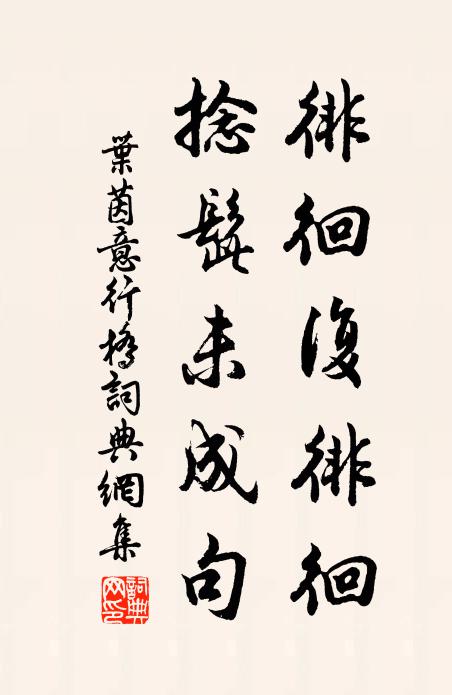 徘徊復徘徊
捻髭未成句
葉茵意行橋詞典網集
詞典网印